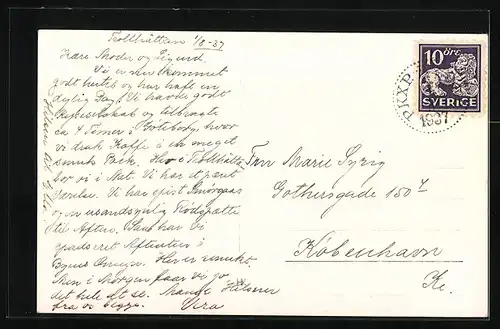 Trollhättan 1/8-37
Kære Moder og Sigurd.
Vi er nu kommet
godt hertil og har haft en
dejlig Dag. Vi havde godt
Rejseselskab og tilbragte
ca 4 Timer i Göteborg, hvor
vi drak Kaffe i en meget
smuk Park. Her i Trollhätta
bor vi i Nat. Vi har et pænt
Værelse. Vi har spist Smörgås
og en usandsynlig Rödspætte
til Aften. Saa har vi
spadseret Aftentur i
Byens Omegn. Her er smukt
Men i Morgen faar vi jo
det hele at se. Mange Hilsner
fra os begge. Vera
Hilsen
Fru Marie Syrig
Gothersgade 150
København
K.
10 öre
SVERIGE
PKXP
1937